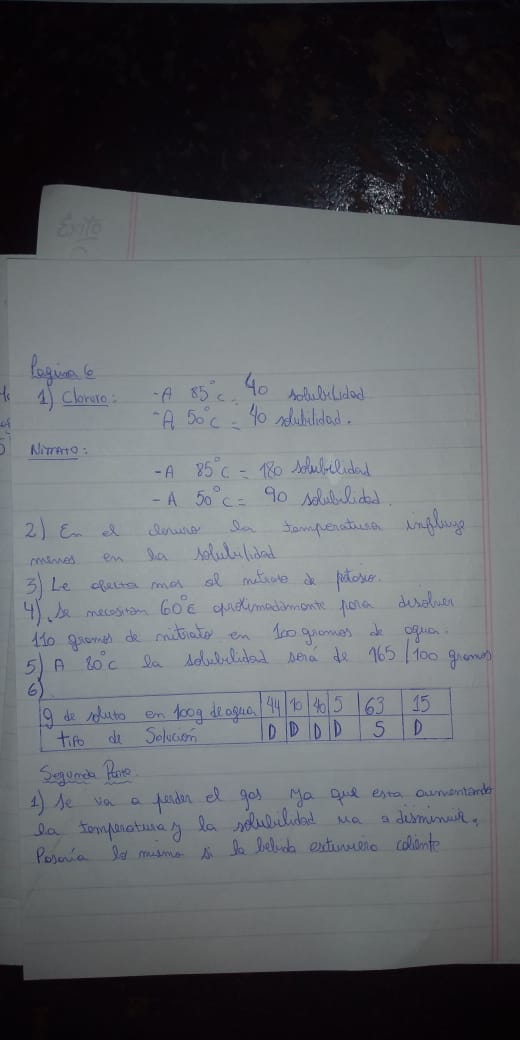 Éxito
Pagina 6
1) Cloruro: -A 85°c = 40 solubilidad
-A 50°c = 40 solubilidad.
NITRATO:
-A 85°c = 180 solubilidad
-A 50°c = 90 solubilidad.
2) En el cloruro la temperatura influye
menos en la solubilidad
3) Le afecta mas al nitrato de potasio.
4) Se necesitan 60°c aproximadamente para disolver
110 gramos de nitrato en 100 gramos de agua.
5) A 80°c la solubilidad será de 165/100 gramos
6)
g de soluto en 100g de agua 44 10 40 5 63 15
tipo de Solución D D D D S D
Segunda Parte.
1) Se va a perder el gas ya que esta aumentando
la temperatura y la solubilidad va a disminuir.
Pasaria lo mismo si la bebida estuviera caliente